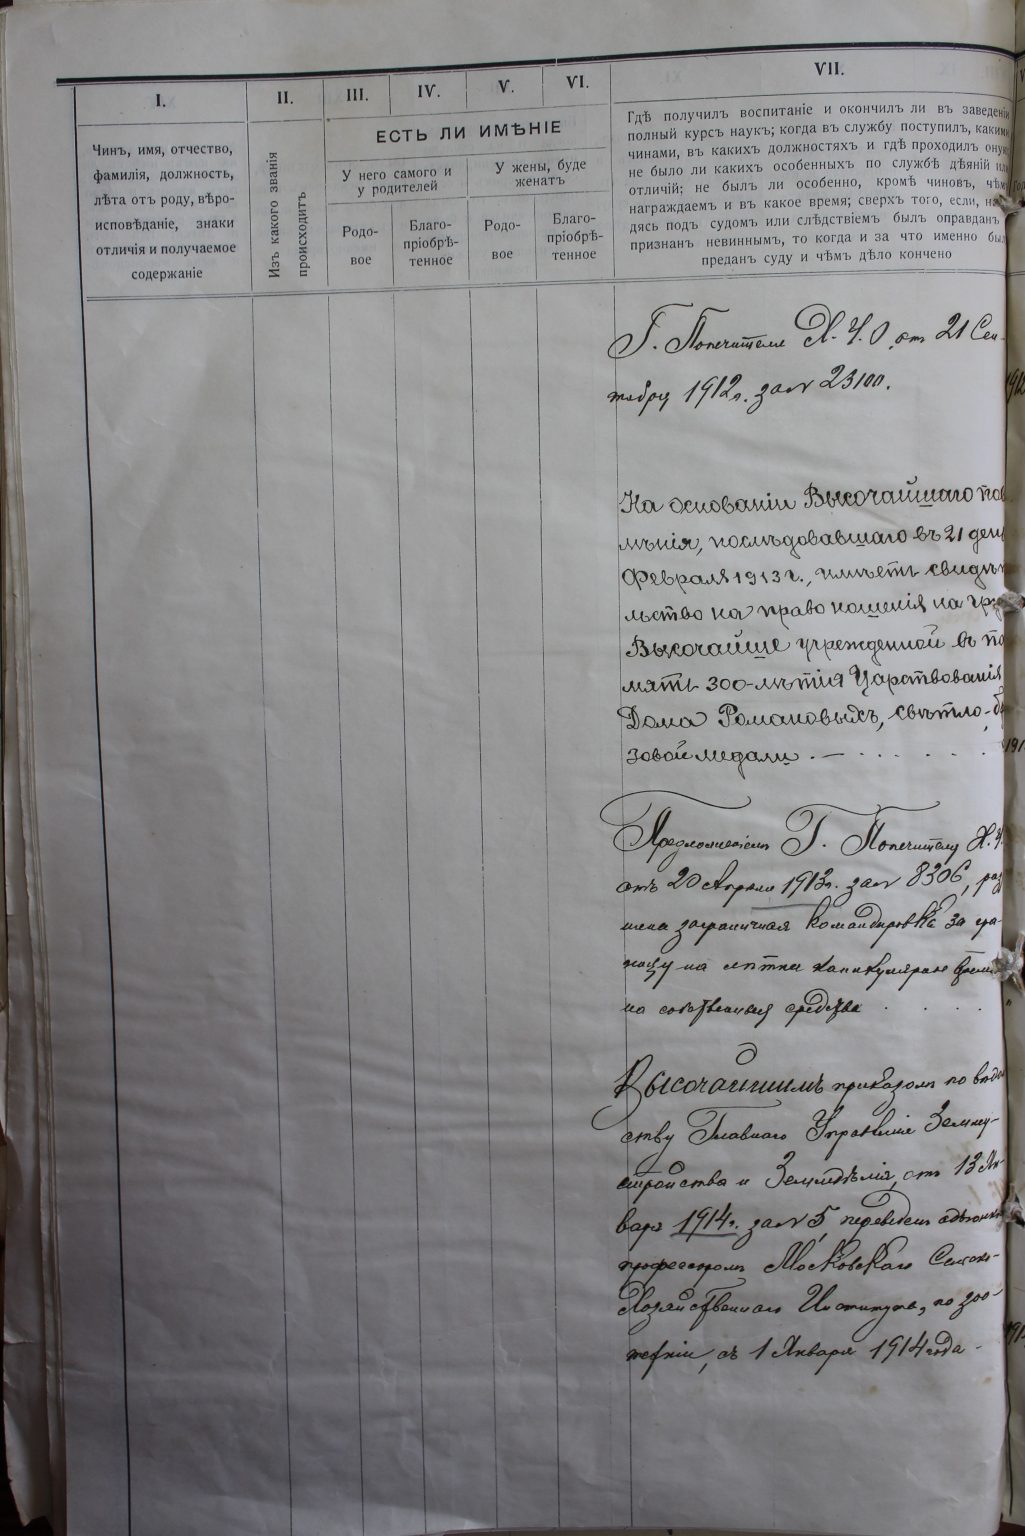 I.
II.
III.
IV.
V.
VI.
VII.
Чинъ, имя, отчество,
фамилія, должность,
лѣта отъ роду, вѣро-
исповѣданіе, знаки
отличія и получаемое
содержаніе
Изъ какого званія
происходитъ
ЕСТЬ ЛИ ИМѢНІЕ
У него самого и
у родителей
У жены, буде
женатъ
Родо-
вое
Благо-
пріобрѣ-
тенное
Родо-
вое
Благо-
пріобрѣ-
тенное
Гдѣ получилъ воспитаніе и окончилъ ли въ заведеніи
полный курсъ наукъ; когда въ службу поступилъ, какими
чинами, въ какихъ должностяхъ и гдѣ проходилъ оную;
не было ли какихъ особенныхъ по службѣ дѣяній или
отличій; не былъ ли особенно, кромѣ чиновъ, чѣмъ
награждаемъ и въ какое время; сверхъ того, если, на
дясь подъ судомъ или слѣдствіемъ былъ оправданъ
признанъ невиннымъ, то когда и за что именно был
преданъ суду и чѣмъ дѣло кончено
Г. Попечителя Х. У. О. отъ 21 Сен-
тября 1912 г. за № 23100.
На основаніи Высочайшаго пов
лѣнія, послѣдовавшаго въ 21 день
Февраля 1913 г., имѣетъ свидѣт
льство на право ношенія на гру
Высочайше учрежденной въ па
мять 300-лѣтія Царствованія
Дома Романовыхъ, свѣтло-б
зовой медали
Предложеніемъ Г. Попечителя Х. У.
отъ 20 Апрѣля 1913 г. за № 8306, раз
шена заграничная командировка за гра-
ницу на лѣтнее каникулярное время
на собственныя средства
Высочайшимъ приказомъ по вѣдом
ству Главнаго Управленія Землеу-
стройства и Земледѣлія, отъ 13 Ян-
варя 1914 г. за № 5, переведенъ адъюнктъ
профессоромъ Московскаго Сельско-
Хозяйственнаго Института, по зоо-
техніи, съ 1 Января 1914 года